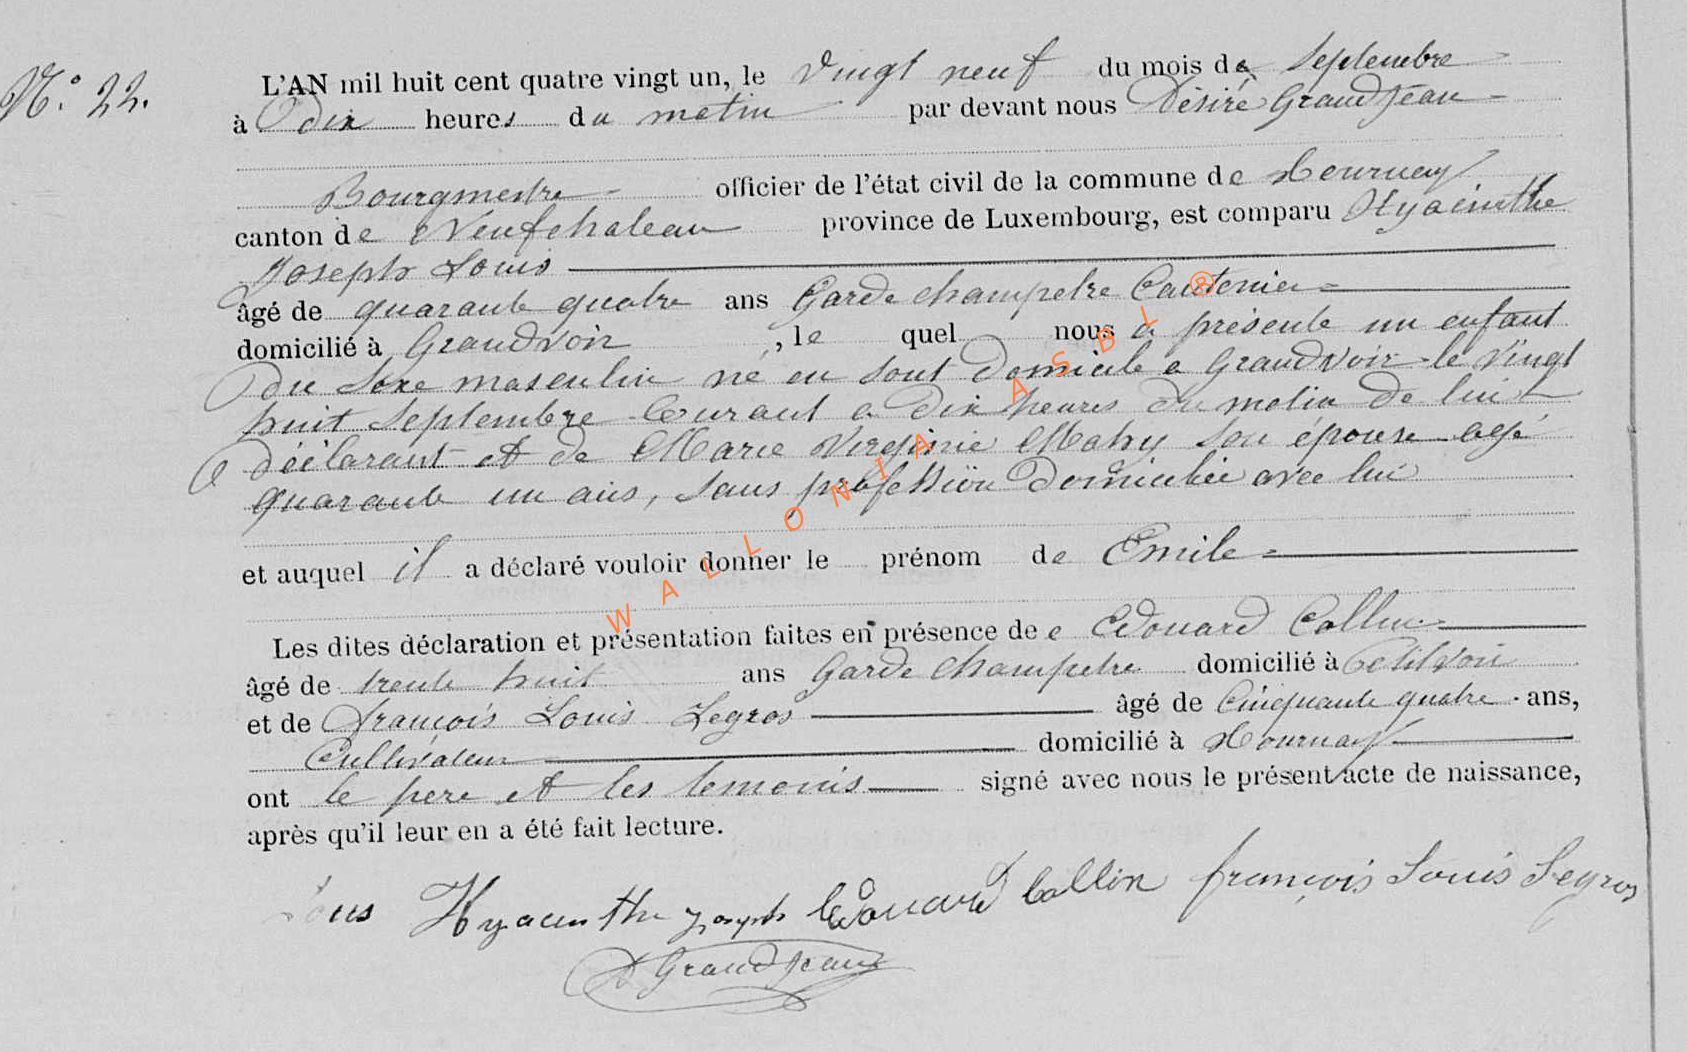 N.° 22.
L'AN mil huit cent quatre vingt un, le vingt neuf du mois de Septembre
à dix heures du matin par devant nous Désiré Grandjean
Bourgmestre officier de l'état civil de la commune de Tournay
canton de Neufchateau province de Luxembourg, est comparu Hyacinthe
Joseph Louis
âgé de quarante quatre ans Garde champetre Cantonier
domicilié à Grandvoir, le quel nous a présente un enfant
du Sexe masculin né en sont domicile a Grandvoir le vingt
huit Septembre Courant a dix heures du matin de lui
déclarant et de Marie Virginie Mahy son épouse agé
quarante un ans, sans profession domiciliée avec lui
et auquel il a déclaré vouloir donner le prénom de Emile
Les dites déclaration et présentation faites en présence de e Edouard Collin
âgé de trente huit ans Garde champetre domicilié à Petitvoir
et de françois Louis Legros âgé de Cinquante quatre ans,
Cultivateur domicilié à Tournay
ont le pere et les temoins signé avec nous le présent acte de naissance,
après qu'il leur en a été fait lecture.
Louis Hyacinthe Joseph Edouard Collin françois Louis Legros
D Grandjean
WALLONIA ASBL ®